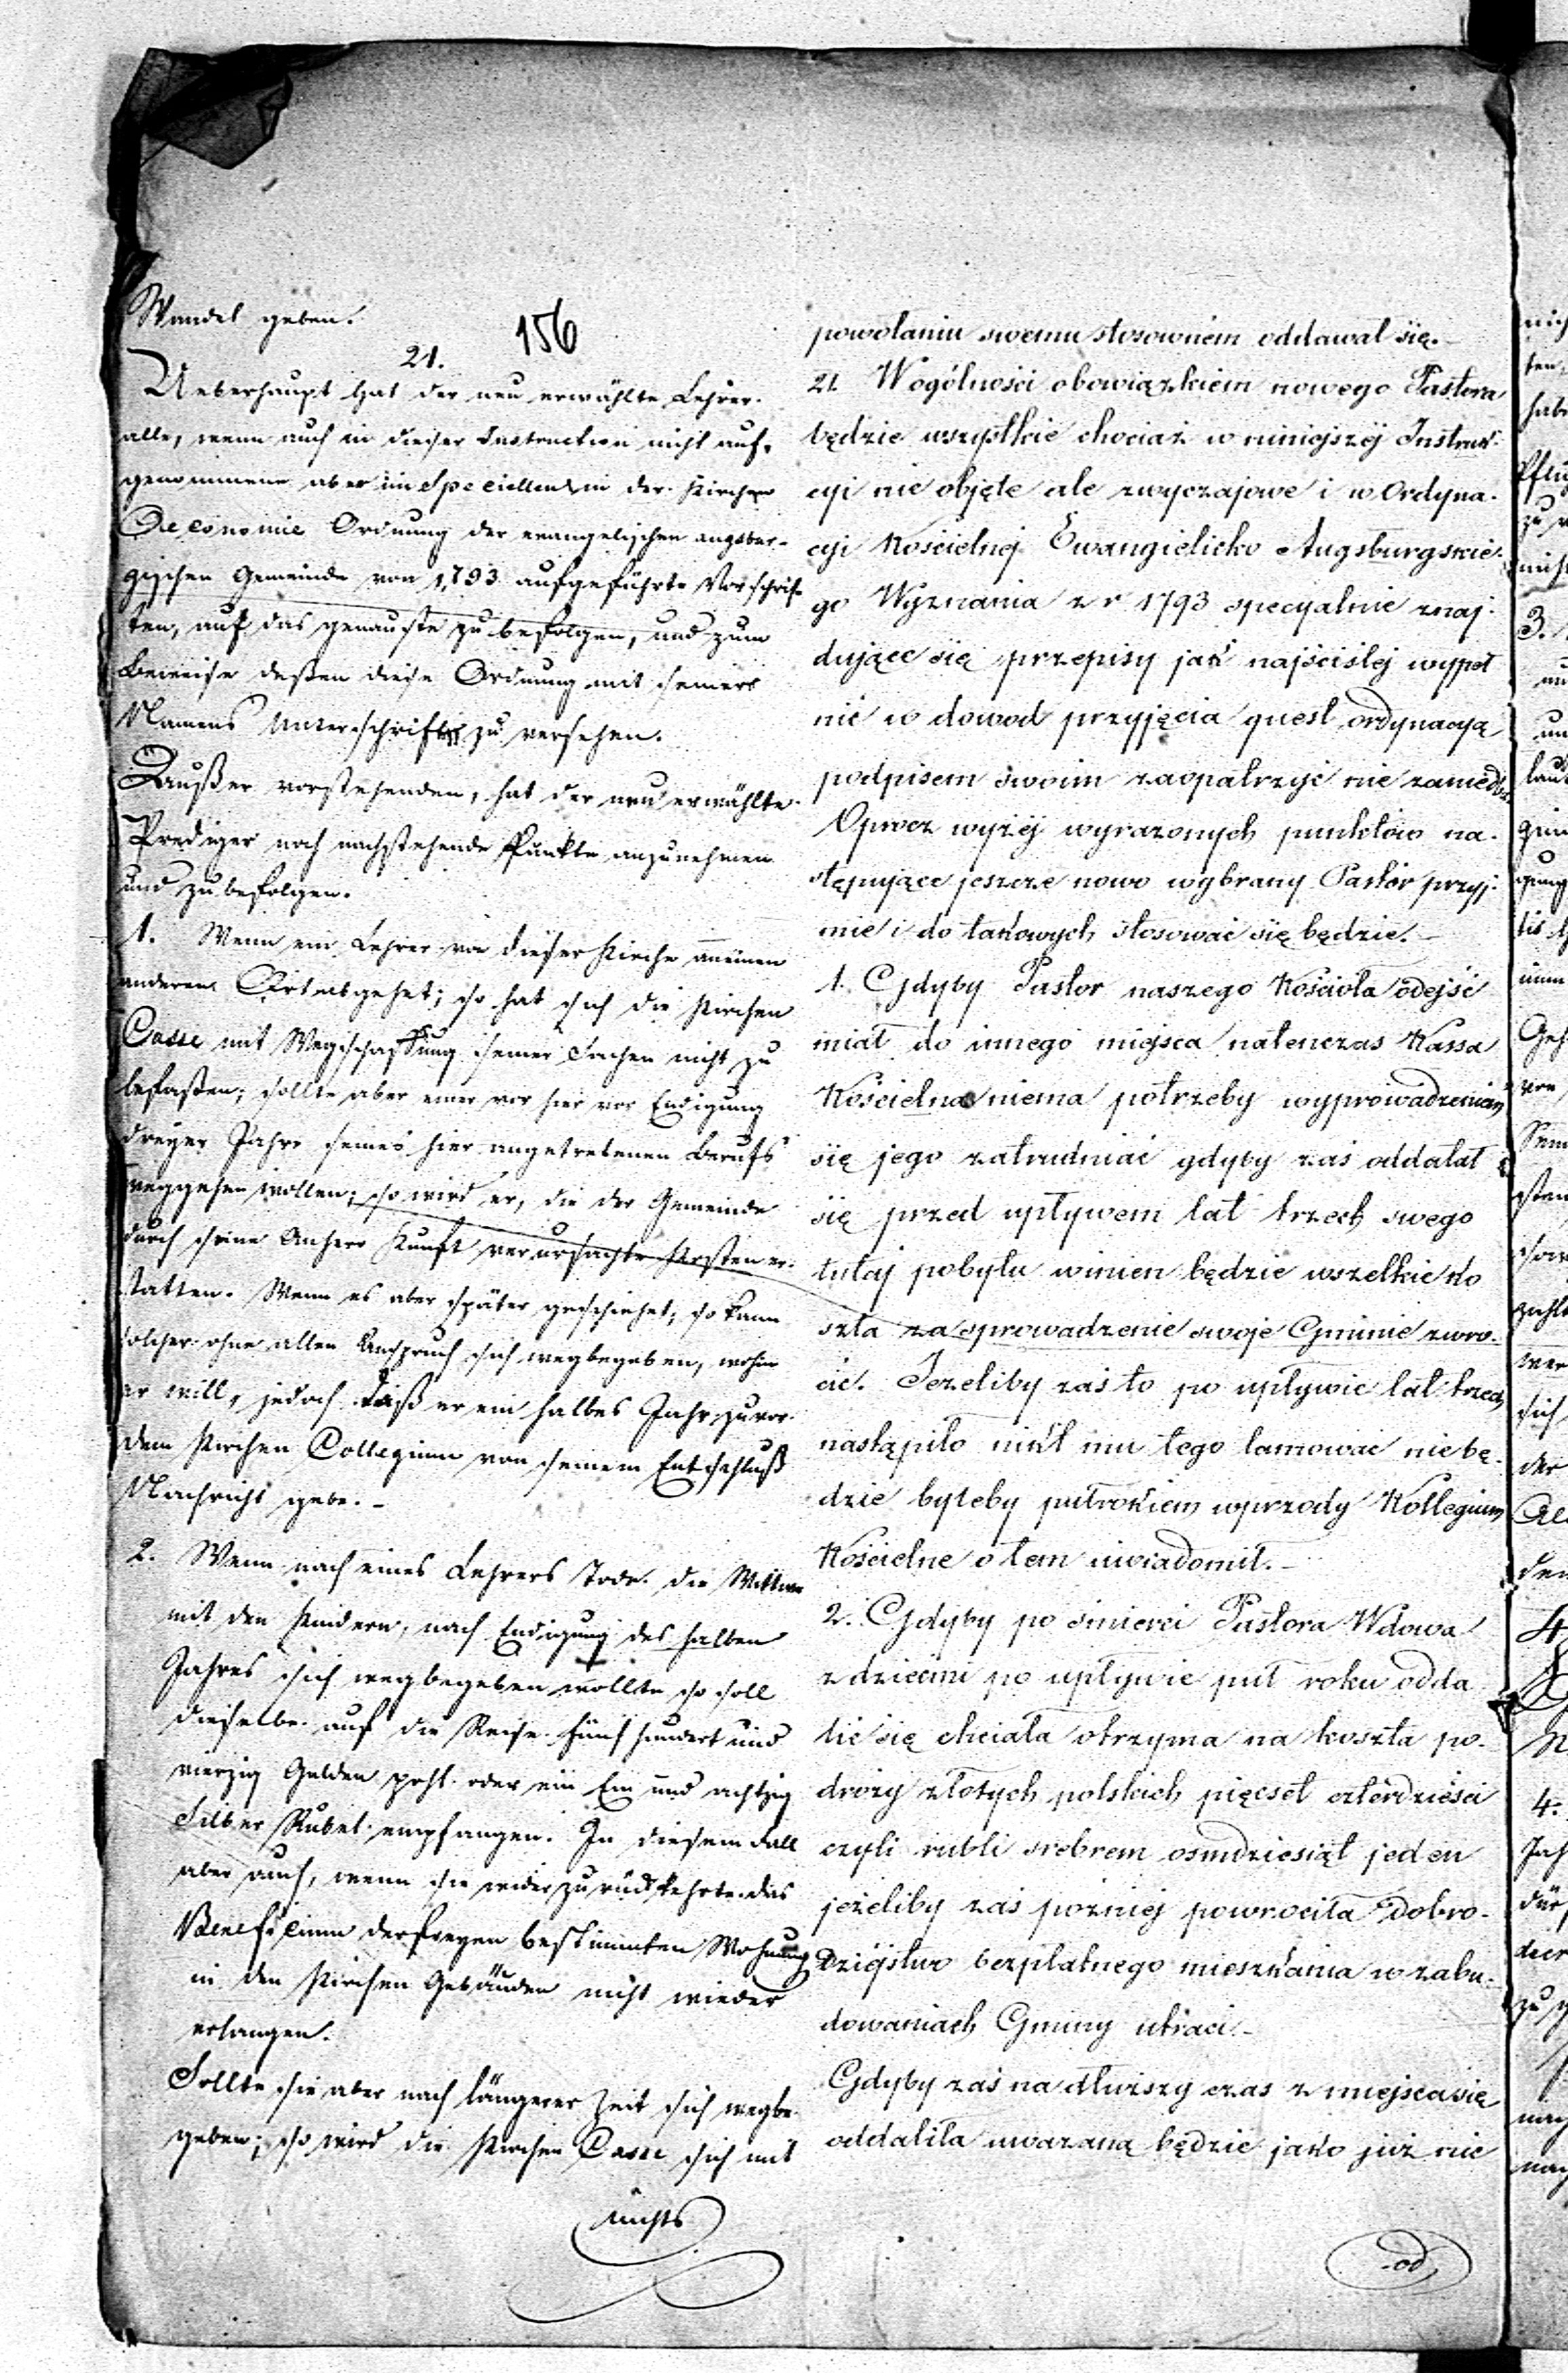 156
Wandel geben.
21.
Ueberhaupt hat der neu erwählte Lehrer
alle, wenn auch in dieser Instruction nicht auf-
genommene aber im Speciellen in der Kirchen
Oeconomie Ordnung der evangelischen augsbur-
gischen Gemeinde von 1793 aufgeführte Vorschrif-
ten, auf das genauste zu befolgen, und zum
Beweise deßen diese Ordnung mit seiner
Namens Unterschrift zu versehen.
Außer vorstehenden, hat der neu erwählte
Prediger noch nachstehende Punkte anzunehmen
und zu befolgen.
1. Wenn ein Lehrer von dieser Kirche an einen
anderen Ort abgehet; so hat sich die Kirchen
Casse mit Wegschaffung seiner Sachen nicht zu
befaßen; sollte aber einer von hier vor Endigung
dreyer Jahre seines hier angetretenen Berufs
weggehen wollen; so wird er, die der Gemeinde
durch seine Anhero Kunft verursachte Kosten er-
statten. Wenn es aber später geschiehet, so kann
solcher ohne allen Anspruch sich wegbegeben, wohin
er will, jedoch daß er ein halbes Jahr zuvor
dem Kirchen Collegium von seinem Entschluß
Nachricht gebe. -
2. Wenn nach eines Lehrers Tode die Wittwe
mit den Kindern, nach Endigung des halben
Jahres sich wegbegeben wollte so soll
dieselbe auf die Reise fünf hundert und
vierzig Gulden pohl. oder ein Ein und achtzig
Silber Rubel empfangen. In diesem Fall
aber auch, wenn sie wieder zurückkehrte das
Beneficium der freyen bestimmten Wohnung
in den Kirchen Gebäuden nicht wieder
erlangen.
Sollte sie aber nach längerer Zeit sich wegbe-
geben; so wird die Kirchen Casse sich mit
nichts
powołaniu swemu stosownem oddawał się. -
21 Wogólności obowiązkiem nowego Pastora
będzie wszystkie chociaż w niniejszéj Instruk-
cyi nie objęte ale zwyczajowe i w Ordyna-
cyi Kościelnej Ewangielicko Augsburgskie-
go Wyznania z r 1793 specyalnie znaj-
dujące się przepisy jak najściślej wypeł
nić w dowod przyjęcia quest. ordynacyą
podpisem swoim zaopatrzyć nie zaniedba
Oprocz wyżéj wyrazonych punktów na-
stępujące jeszcze nowo wybrany Pastór przyj-
mie i do takowych stosować się będzie. -
1. Gdyby Pastor naszego Kościoła odejść
miał do innego miejsca natenczas Kassa
Kościelna niema potrzeby wyprowadzeniem
się jego zatrudniać gdyby zaś oddalał
się przed upływem lat trzech swego
tutaj pobytu winien będzie wszelkie ko
szta za sprowadzenie swoje Gminie zwró-
cić. Jezeliby zaś to po upływie lat trzech
nastąpiło nikt mu tego tamować nie bę-
dzie byleby pułrokiem wprzody Kollegium
Kościelne o tem uwiadomił. -
2. Gdyby po śmierci Pastora Wdowa
z dziećmi po upływie puł roku odda
lić się chciała otrzyma na koszta po-
dróży złotych polskich pięcset czterdzieści
czyli rubli srebrem osmdziesiąt jeden
jeżeliby zaś pozniéj powrociła Dobro-
dziéjstwo bezpłatnego mieszkania w zabu-
dowaniach Gminy utraci. -
Gdyby zaś na dłuższy czas z miejsca się
oddaliła uwazaną będzie jako już nie
od